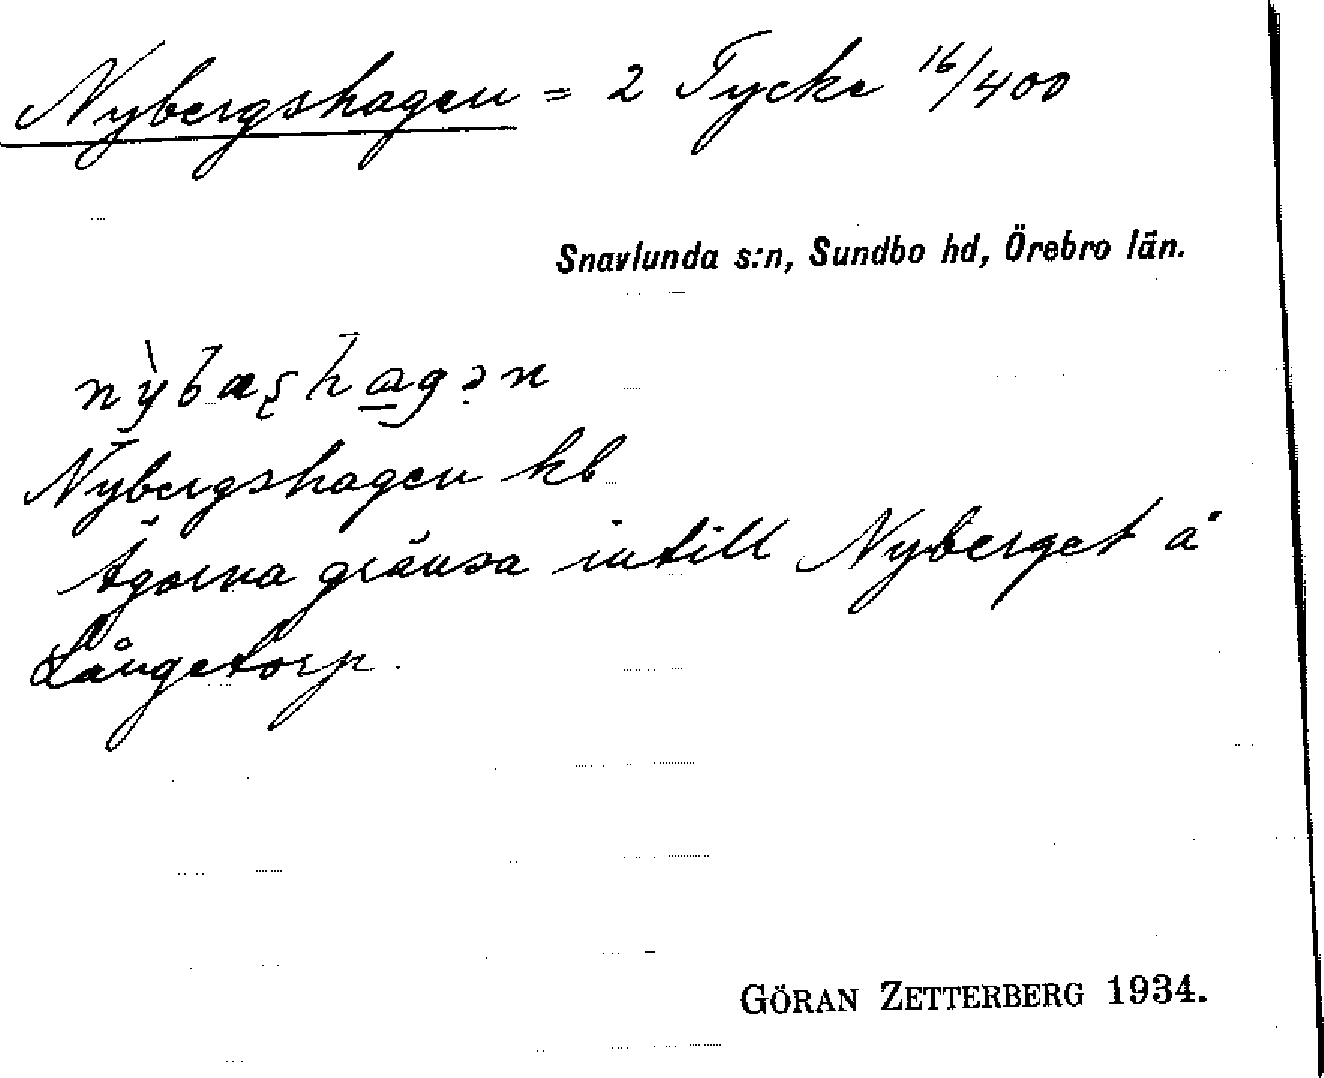 Nybergshagen = 2 Tycke 16/400
Snavlunda s:n, Sundbo hd, Örebro län.
Nybergshagen kb
Ägorna gränsa intill Nyberget å
Långetorp.
GÖRAN ZETTERBERG 1934.